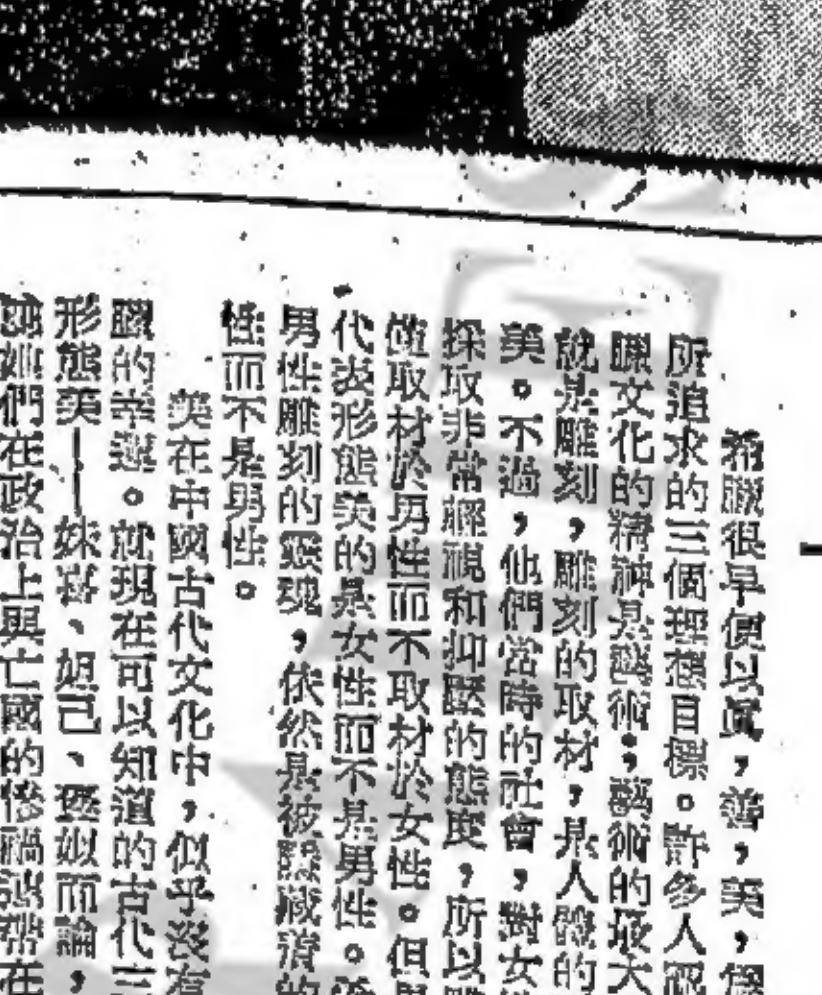 希臘很早便以真，善，美，
所追求的三個理想目標。許多人認
臘文化的精神是藝術；藝術的最大
就是雕刻，雕刻的取材，是人體的
美。不過，他們當時的社會，對女
採取非常輕視和抑壓的態度，所以
取材於男性而不取材於女性。但
代表形態美的是女性而不是男性。
男性雕刻的靈魂，依然是被隱藏着的
性而不是男性。
美在中國古代文化中，似乎沒有
臘的幸運。就現在可以知道的古代三
形態美——妹喜、妲己、褒姒而論，
她們在政治上與亡國的慘禍連帶在